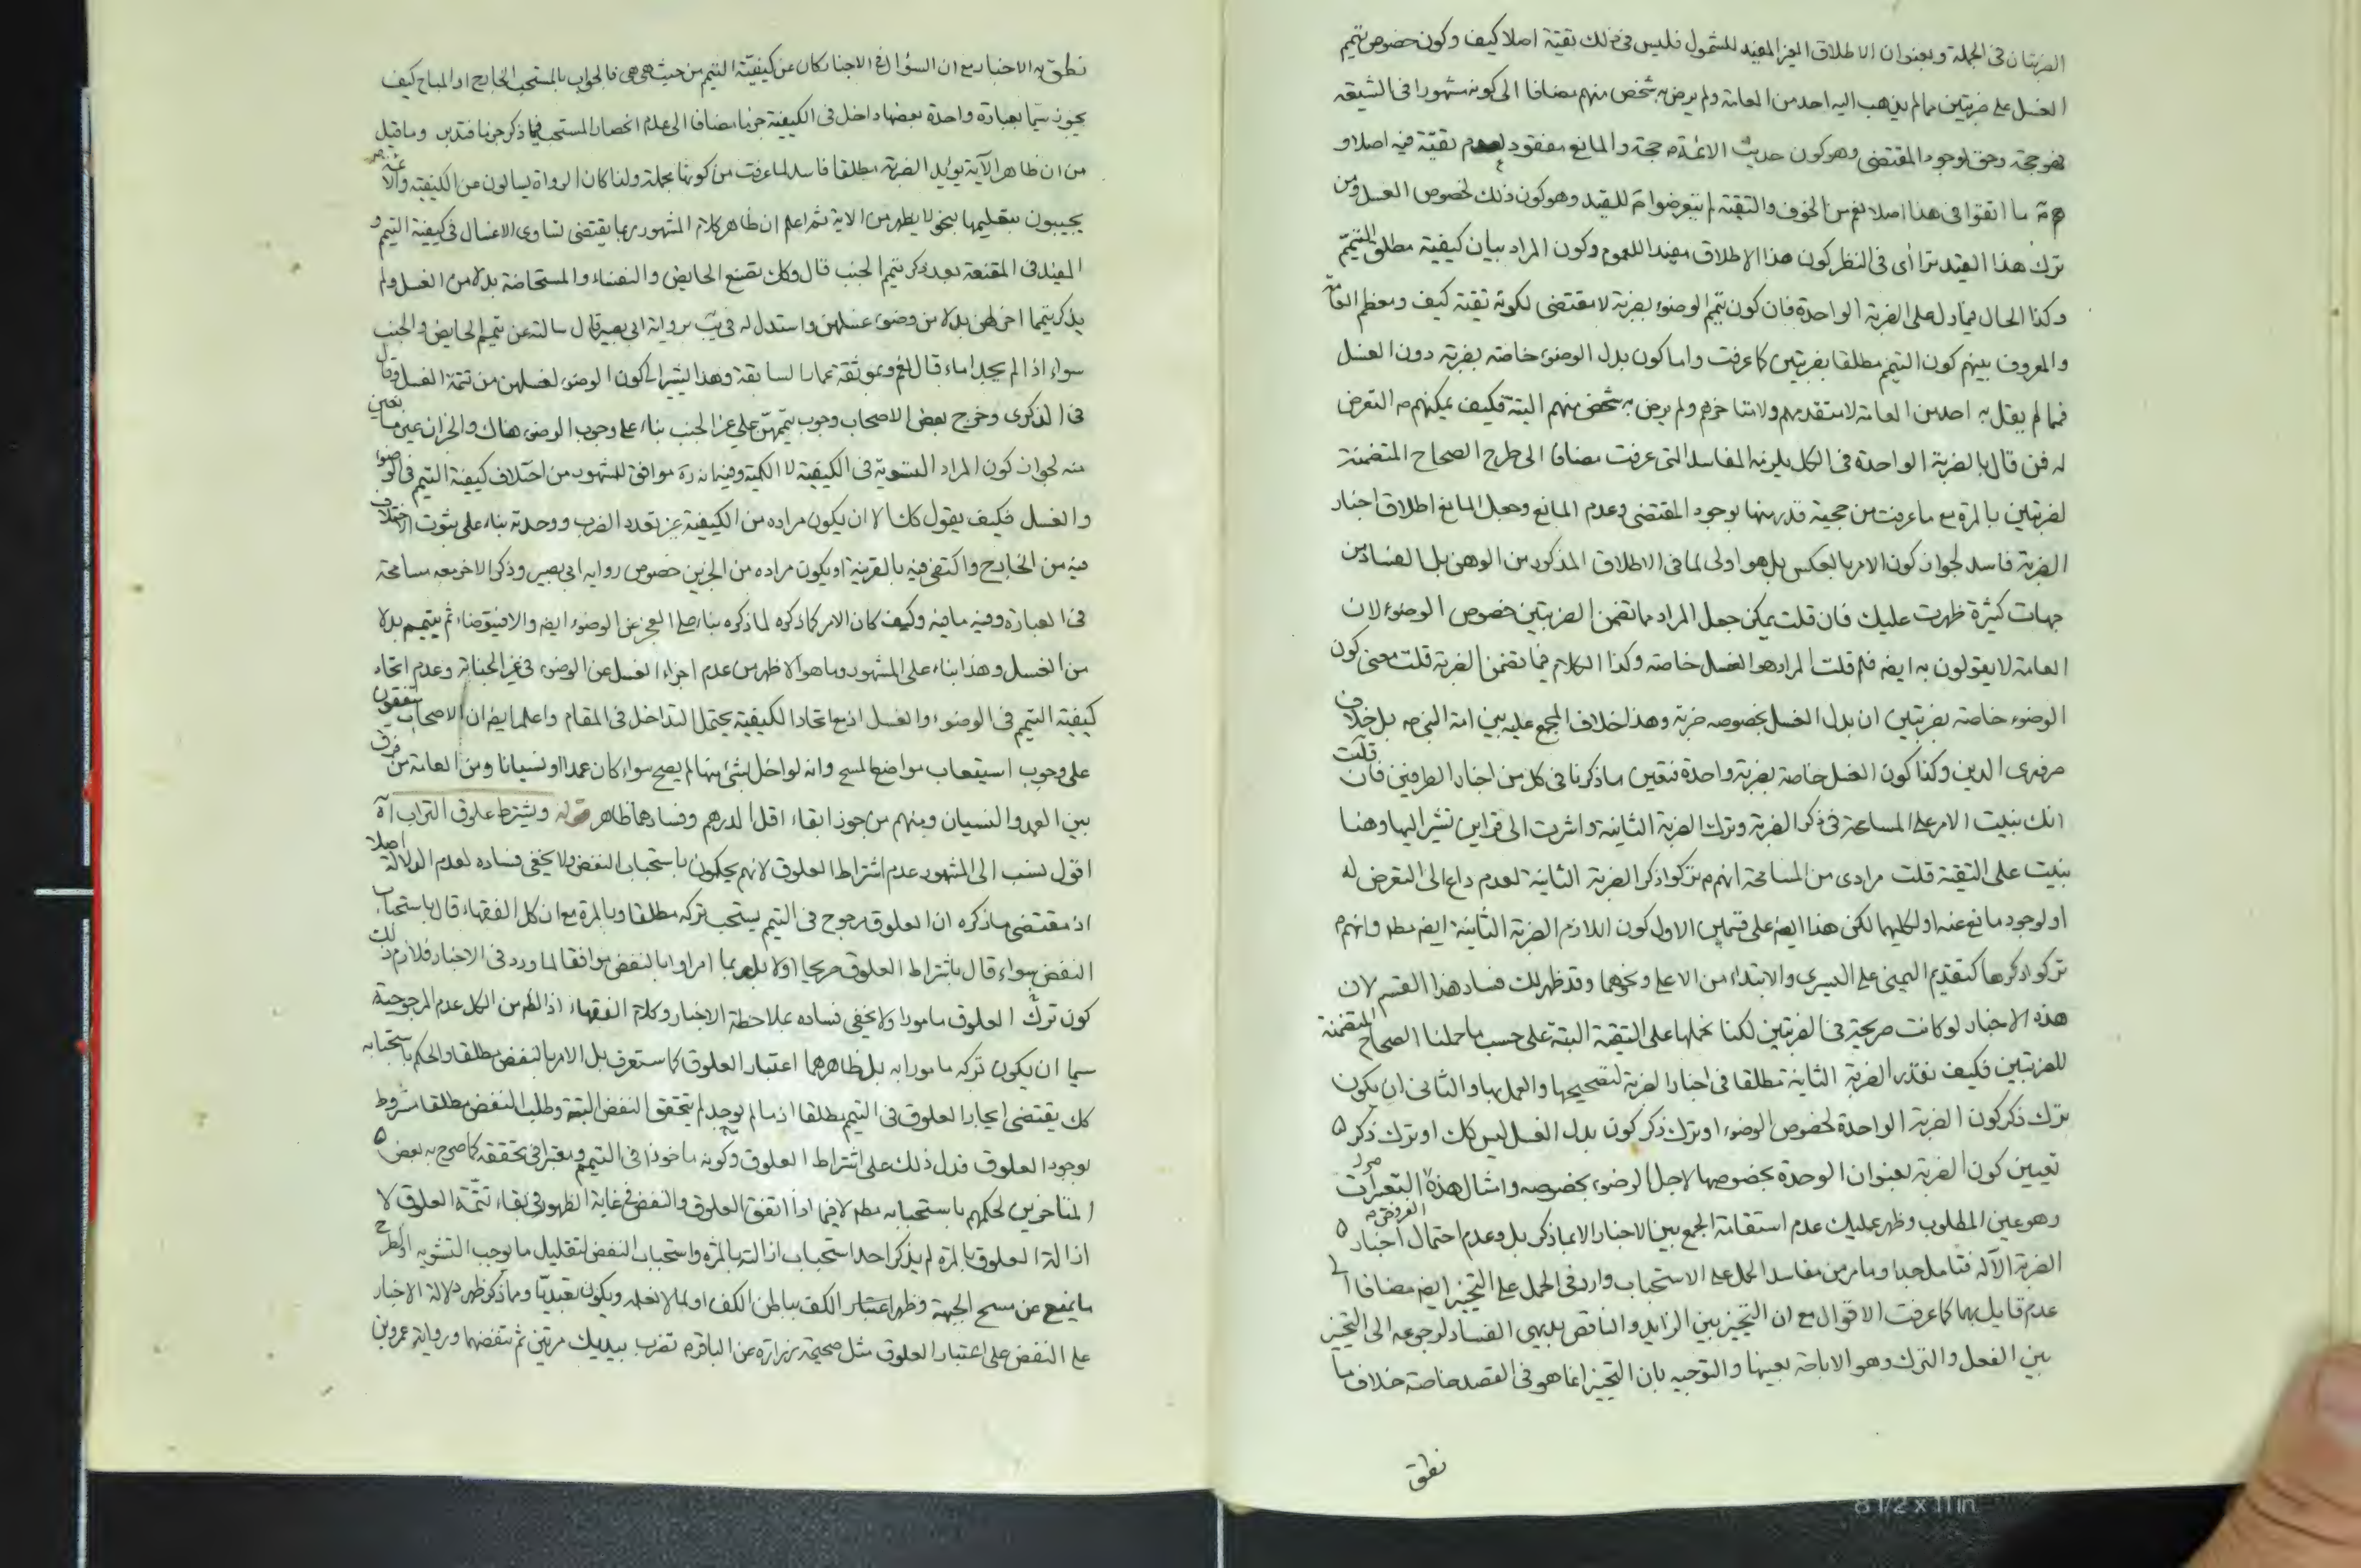 الضربتان في الجملة وبعنوان الاطلاق الغير المفيد للشمول فليس في ذلك تقية اصلا كيف وكون خصوص تيمم
الغسل على ضربتين مما لم يذهب اليه احد من العامة ولم يرض به شخص منهم مضافا الى كونه مشهورا في الشيعة
فهو حجة وحق لوجود المقتضي وهو كون حديث الائمة حجة والمانع مفقود لعدم تقية فيه اصلا و
ما اتقوا في هذا اصلا نعم من الخوف والتقية لم يتعرضوا للقيد وهو كون ذلك لخصوص الغسل ومن
ترك هذا القيد تراأى في النظر كون هذا الاطلاق مفيدا للعموم وكون المراد بيان كيفية مطلق التيمم
وكذا الحال فيما دل على الضربة الواحدة فان كون تيمم الوضوء بضربة لا مقتضى لكونه تقية كيف ومعظم العامة
والمعروف بينهم كون التيمم مطلقا بضربتين كما عرفت واما كون بدل الوضوء خاصة بضربة دون الغسل
فمما لم يقل به احد من العامة لا متقدمهم ولا متاخرهم ولم يرض به شخص منهم البتة فكيف يمكنهم التعرض
له فمن قال بالضربة الواحدة في الكل يلزمه المفاسد التي عرفت مضافا الى طرح الصحاح المتضمنة
لضربتين بالمرة مع ما عرفت من حجية قدر منها بوجود المقتضي وعدم المانع وجعل المانع اطلاق اخبار
الضربة فاسد لجواز كون الامر بالعكس بل هو اولى لما في الاطلاق المذكور من الوهن بل الفساد من
جهات كثيرة ظهرت عليك فان قلت يمكن جعل المراد مما تضمن الضربتين خصوص الوضوء لان
العامة لا يقولون به ايضا فلم قلت المراد هو الغسل خاصة وكذا الكلام فيما تضمن الضربة قلت معنى كون
الوضوء خاصة بضربتين ان بدل الغسل بخصوصه ضربة وهذا خلاف المجمع عليه بين امة النبي ص بل خلاف
ضروري الدين وكذا كون الغسل خاصة بضربة واحدة فتعين ما ذكرنا في كل من اخبار الطرفين فان قلت
انك بنيت الامر على المسامحة في ذكر الضربة وترك الضربة الثانية واشرت الى قراين تشير اليها وهنا
بنيت على التقية قلت مرادي من المسامحة انهم تركوا ذكر الضربة الثانية لعدم داع الى التعرض له
او لوجود مانع عنه او لكليهما لكن هذا ايضا على قسمين الاول كون اللازم الضربة الثانية ايضا مطلقا وانهم
تركوا ذكرها كتقديم اليمنى على اليسرى والابتداء من الاعلى ونحوهما وقد ظهر لك فساد هذا القسم لان
هذه الاخبار لو كانت صريحة في الضربتين لكنا نحملها على التقية البتة على حسب ما حملنا الصحاح المتضمنة
للضربتين فكيف نقدر الضربة الثانية مطلقا في اخبار الضربة لتصحيحها والعمل بها والثاني ان يكون
ترك ذكر كون الضربة الواحدة لخصوص الوضوء او ترك ذكر كون بدل الغسل ليس كك او ترك ذكر
تعيين كون الضربة بعنوان الوحدة بخصوصها لاجل الوضوء بخصوصه وامثال هذه التعبيرات
وهو عين المطلوب وظهر عليك عدم استقامة الجمع بين الاخبار الا بما ذكر بل وعدم احتمال اخبار
الضربة الا له فتامل جدا وما مر من مفاسد الحمل على الاستحباب وارد في الحمل على التخيير ايضا مضافا الى
عدم قايل بهما كما عرفت الاقوال مع ان التخيير بين الزايد والناقص بديهي الفساد لرجوعه الى التخيير
بين الفعل والترك وهو الاباحة بعينها والتوجيه بان التخيير انما هو في القصد خاصة خلاف ما
نطق
نطق به الاخبار مع ان السؤال في الاخبار كان عن كيفية التيمم من حيث هي هي فالجواب بالمستحب الخارج او المباح كيف
يجوز سيما بعبارة واحدة بعضها داخل في الكيفية جزما مضافا الى عدم انحصار المستحب فيما ذكر جزما فتدبر وما قيل
من ان ظاهر الآية يؤيد الضربة مطلقا فاسد لما عرفت من كونها مجملة ولذا كان الرواة يسالون عن الكيفية والائمة
يجيبون بتعليمها بنحو لا يظهر من الاية ثم اعلم ان ظاهر كلام المشهور ربما يقتضي تساوي الاغسال في كيفية التيمم و
المفيد في المقنعة بعد ذكر تيمم الجنب قال وكك تصنع الحايض والنفساء والمستحاضة بدلا من الغسل ولم
يذكر تيمما اخر لهن بدلا من وضوء غسلهن واستدل له في يب برواية ابي بصير قال سالته عن تيمم الحايض والجنب
سواء اذا لم يجد اماء قال نعم وبموثقة عمار السابقة وهذا يشير الى كون الوضوء لغسلهن من تتمة الغسل وقال
في الذكرى وخرج بعض الاصحاب وجوب تيممين على غير الجنب بناء على وجوب الوضوء هناك والخبران غير مانعين
منه لجواز كون المراد التسوية في الكيفية لا الكمية وفيه انه ره موافق للمشهور من اختلاف كيفية التيمم في الوضوء
والغسل فكيف يقول كك الا ان يكون مراده من الكيفية غير تعدد الضرب ووحدته بناء على ثبوت الاختلاف
فيه من الخارج واكتفى فيه بالقرينة او يكون مراده من الخبرين خصوص رواية ابي بصير وذكر الاخر معه مسامحة
في العبارة وفيه ما فيه وكيف كان الامر كما ذكره لما ذكره بناء على العجز عن الوضوء ايضا والا فيتوضاء ثم يتيمم بدلا
من الغسل وهذا بناء على المشهور وما هو الاظهر من عدم اجزاء الغسل عن الوضوء في غير الجنابة وعدم اتحاد
كيفية التيمم في الوضوء والغسل اذ مع اتحاد الكيفية يحتمل التداخل في المقام واعلم ايضا ان الاصحاب متفقون
على وجوب استيعاب مواضع المسح وانه لو اخل بشئ منها لم يصح سواء كان عمدا او نسيانا ومن العامة من فرق
بين العمد والنسيان ومنهم من جوز ابقاء اقل الدرهم وفسادهما ظاهر قوله ويشترط علوق التراب آه
اقول نسب الى المشهور عدم اشتراط العلوق لانهم يحكمون باستحباب النفض ولا يخفى فساده لعدم الدلالة اصلا
اذ مقتضى ما ذكره ان العلوق مرجوح في التيمم يستحب تركه مطلقا وبالمرة مع ان كل الفقهاء قال باستحباب
النفض سواء قال باشتراط العلوق صريحا او لا بل ربما امروا بالنفض موافقا لما ورد في الاخبار فلازم ذلك
كون ترك العلوق مامورا ولا يخفى فساده بملاحظة الاخبار وكلام الفقهاء اذ الظ من الكل عدم المرجوحية
سيما ان يكون تركه مامورا به بل ظاهرهما اعتبار العلوق كما ستعرف بل الامر بالنفض مطلقا والحكم باستحبابه
كك يقتضي ايجاد العلوق في التيمم مطلقا اذ ما لم يوجد لم يتحقق النفض البتة وطلب النفض مطلقا مشروط
بوجود العلوق فدل ذلك على اشتراط العلوق وكونه ماخوذا في التيمم ومعتبرا في تحققه كما صرح به بعض
المتاخرين لحكمهم باستحبابه مطلقا لا فيما اذا اتفق العلوق والنفض في غاية الظهور في بقاء تتمة العلوق لا
ازالة العلوق بالمرة لم يذكر احد استحباب ازالته بالمرة واستحباب النفض لتقليل ما يوجب التشويه او لطرح
ما يمنع عن مسح الجبهة وظهر اعتبار الكف بباطن الكف او لما لا نعلمه ويكون تعبديا ومما ذكر ظهر دلالة الاخبار
على النفض على اعتبار العلوق مثل صحيحة زرارة عن الباقر ع تضرب بيديك مرتين ثم تنفضهما ورواية عمرو بن